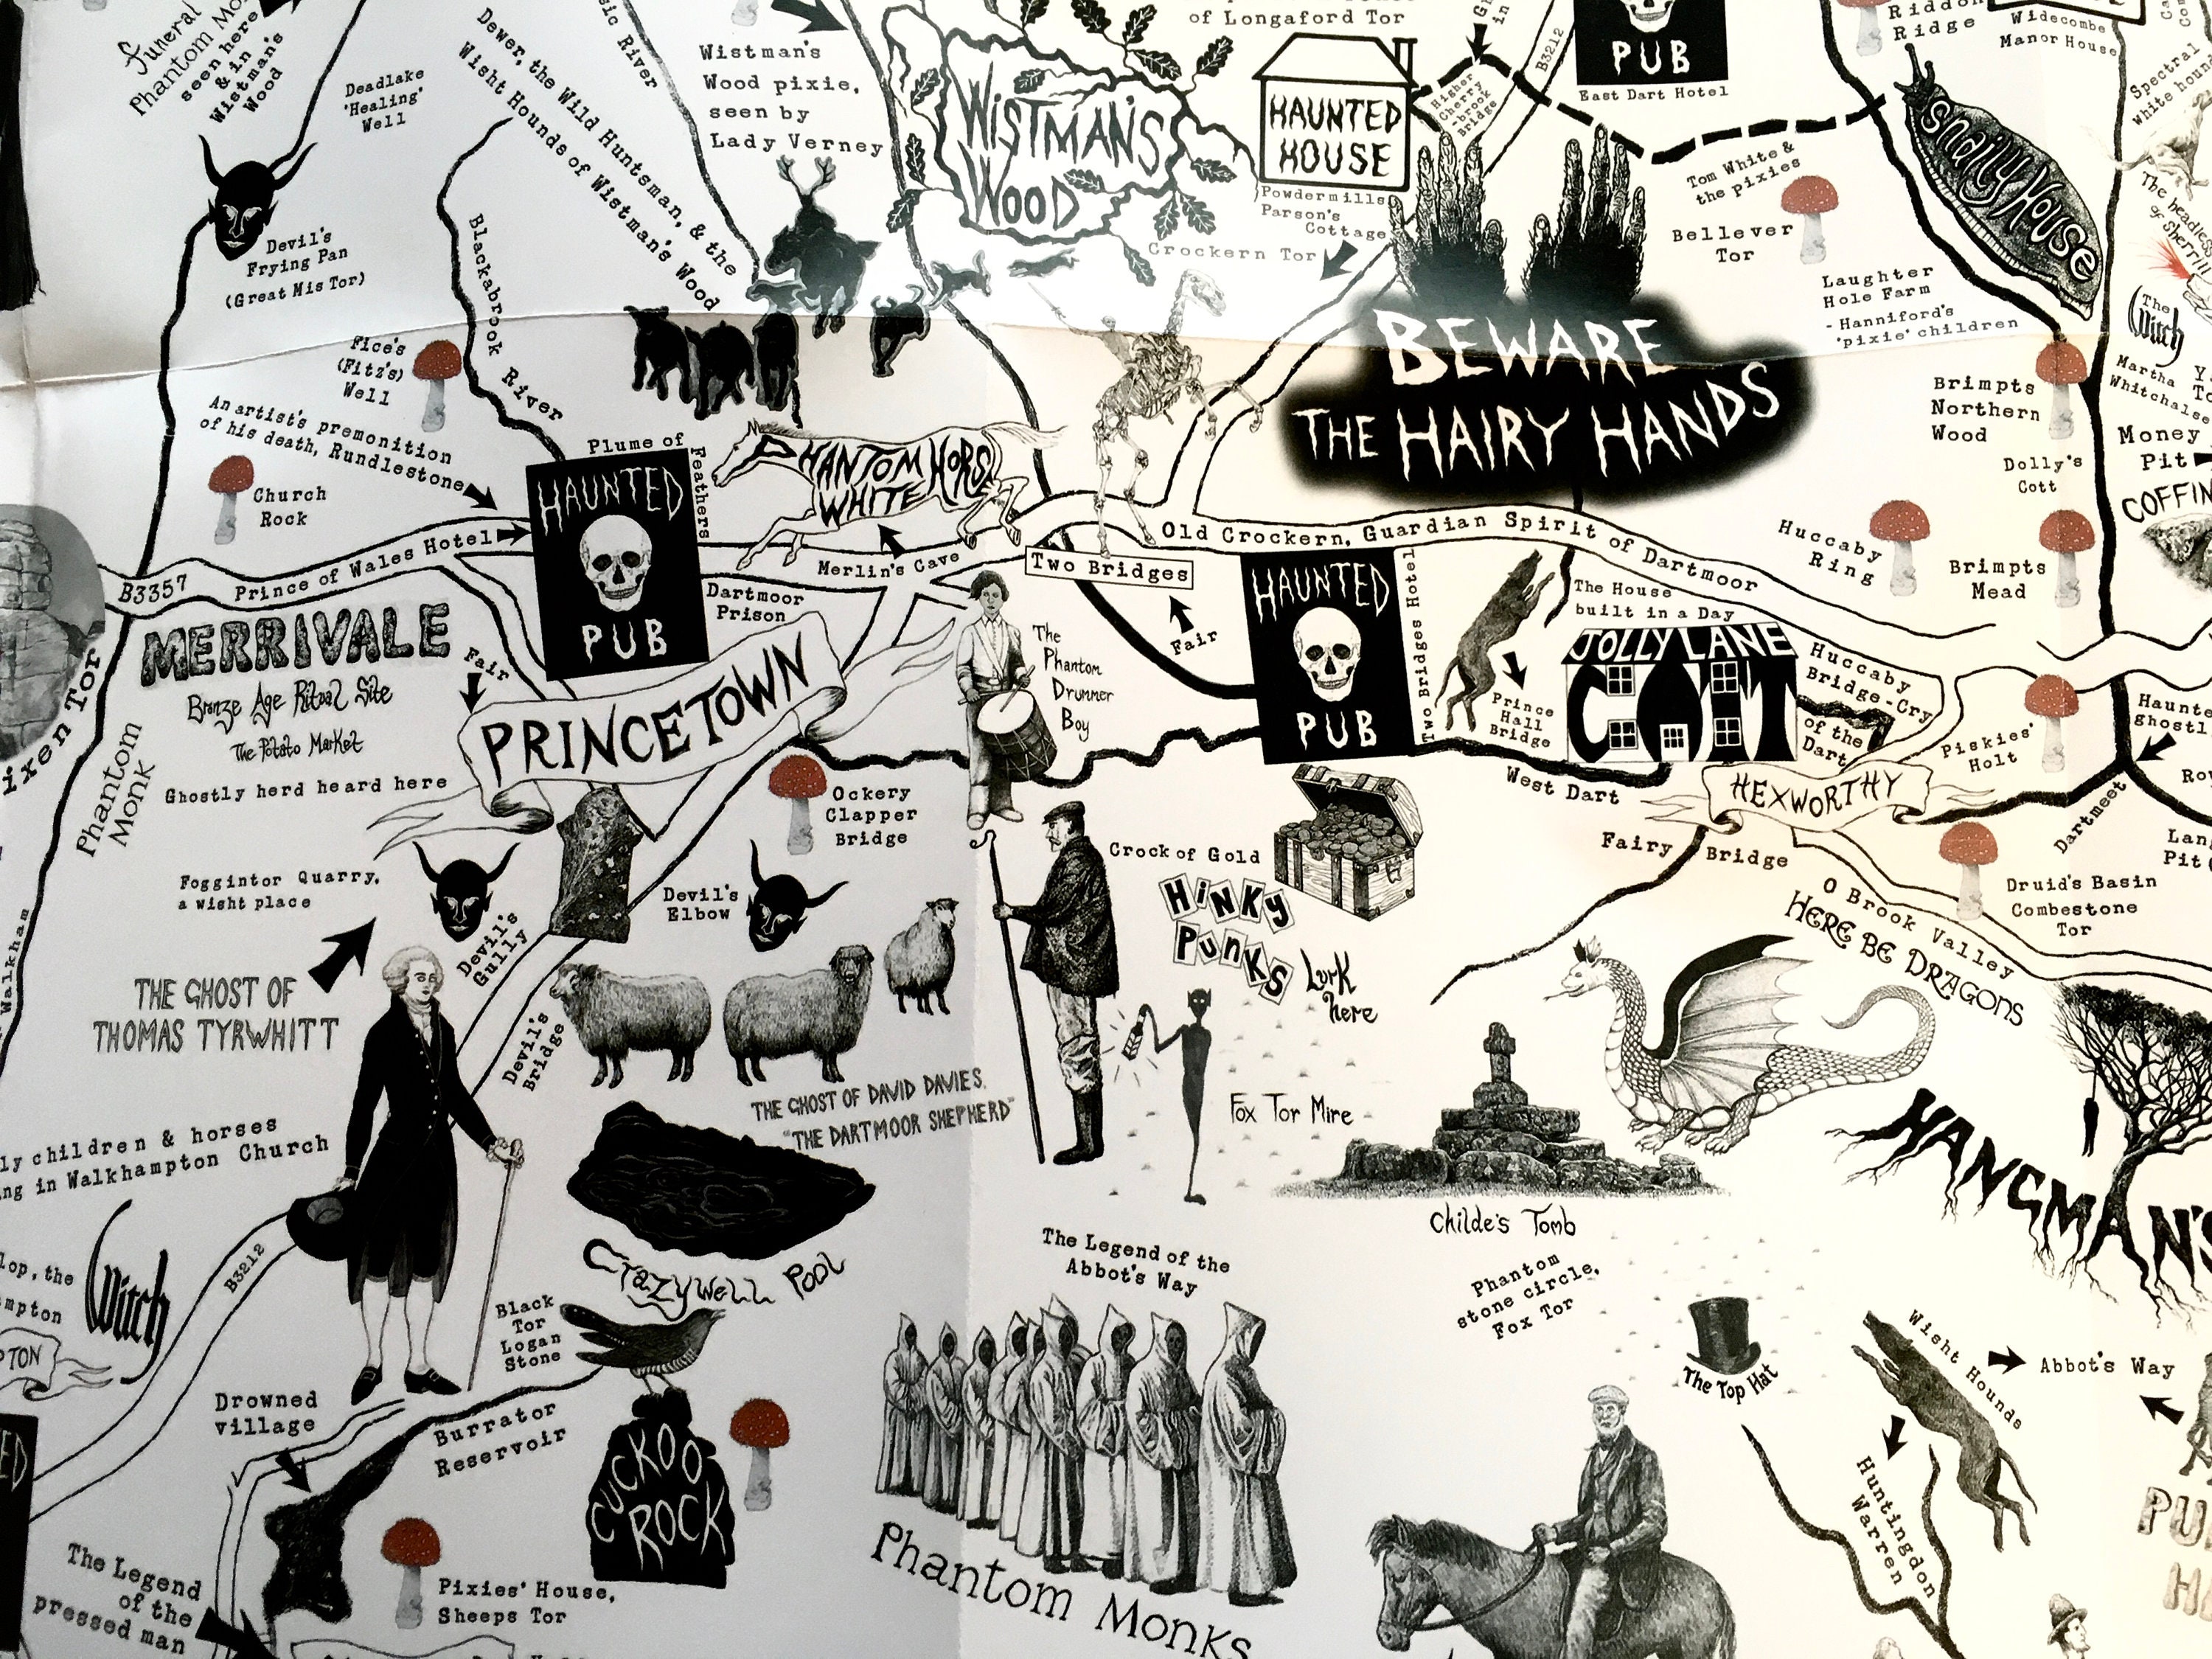 Funeral
Phantom
seen here
& in
Wistman's
Wood
Deadlake
'Healing'
Well
Dewer, the Wild Huntsman, & the
Wisht Hounds of Wistman's Wood
River
Wistman's
Wood pixie,
seen by
Lady Verney
of Longaford Tor
WISTMAN'S
WOOD
HAUNTED
HOUSE
Powdermills
Parson's
Cottage
Crockern Tor
Higher
Cherry
-brook
Bridge
B3212
PUB
East Dart Hotel
Riddon
Ridge
Widecombe
Manor House
Spectral
white hound
Snaily House
Tom White &
the pixies
Bellever
Tor
Laughter
Hole Farm
- Hanniford's
'pixie' children
The headless
of Sherril
The
Witch
Martha
Whitchalse
Money
Pit
COFFIN
Brimpts
Northern
Wood
Dolly's
Cott
Devil's
Frying Pan
(Great Mis Tor)
Blackabrook River
Fice's
(Fitz's)
Well
An artist's premonition
of his death, Rundlestone
Church
Rock
Plume of
Feathers
HAUNTED
PUB
PHANTOM
WHITE HORSE
BEWARE
THE HAIRY HANDS
Old Crockern, Guardian Spirit of Dartmoor
Huccaby
Ring
Brimpts
Mead
B3357
Prince of Wales Hotel
Merlin's Cave
Two Bridges
Dartmoor
Prison
Fair
HAUNTED
PUB
Two Bridges Hotel
Prince
Hall
Bridge
The House
built in a Day
JOLLY LANE
COTT
Huccaby
Bridge-Cry
of the
Dart
MERRIVALE
Bronze Age Ritual Site
The Potato Market
Ghostly herd heard here
Fair
PRINCETOWN
The
Phantom
Drummer
Boy
Vixen Tor
Phantom
Monk
Ockery
Clapper
Bridge
West Dart
HEXWORTHY
Piskies'
Holt
Dartmeet
Fairy Bridge
Foggintor Quarry,
a wisht place
Devil's
Gully
Devil's
Elbow
Devil's
Bridge
Crock of Gold
HINKY
PUNKS
Lurk
here
O Brook Valley
HERE BE DRAGONS
Druid's Basin
Combestone
Tor
Walkham
THE GHOST OF
THOMAS TYRWHITT
THE GHOST OF DAVID DAVIES,
"THE DARTMOOR SHEPHERD"
Fox Tor Mire
Childe's Tomb
HANGMAN'S
children & horses
in Walkhampton Church
the
Witch
B3212
Crazywell Pool
Black
Tor
Logan
Stone
The Legend of the
Abbot's Way
Phantom
stone circle,
Fox Tor
The Top Hat
Wisht Hounds
Abbot's Way
Drowned
village
Burrator
Reservoir
CUCKOO
ROCK
Phantom Monks
Huntingdon
Warren
The Legend
of the
pressed man
Pixies' House,
Sheeps Tor